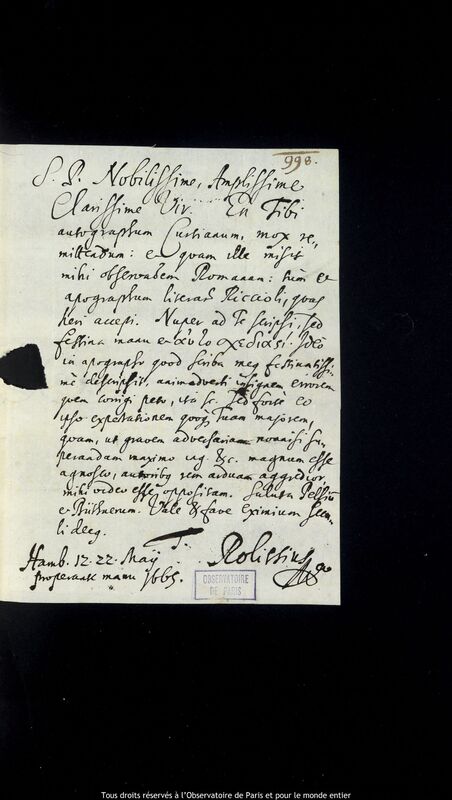 998.
S. P. Nobilissime, Amplissime
Clarissime Vir. En Tibi
autographum Curtianum, mox re,
mittendum: et quam ille misit
mihi observationem Romanam: tum et
apographum literarum Riccioli, quas
heri accepi. Nuper ad Te scripsi, sed
festina manu et αὐτοσχεδιαςί. Ideo
in apographo quod scriba meus festinatissi,
mè descripsit, animadverti insignem errorem
quem corrigi peto, sed forte eo
ipso expectationem quoq Tuam majorem,
quam, ut gravem adversarium nonnisi su,
perandum maximo &c. magnum esse
agnosco, rem arduam aggredior,
mihi video esse oppositam. Saluta
Vale & fave eximium
li decq.
T.
Hamb. 12. 22. Maÿ
properante manu 1665.
OBSERVATOIRE
DE PARIS
Tous droits réservés à l'Observatoire de Paris et pour le monde entier